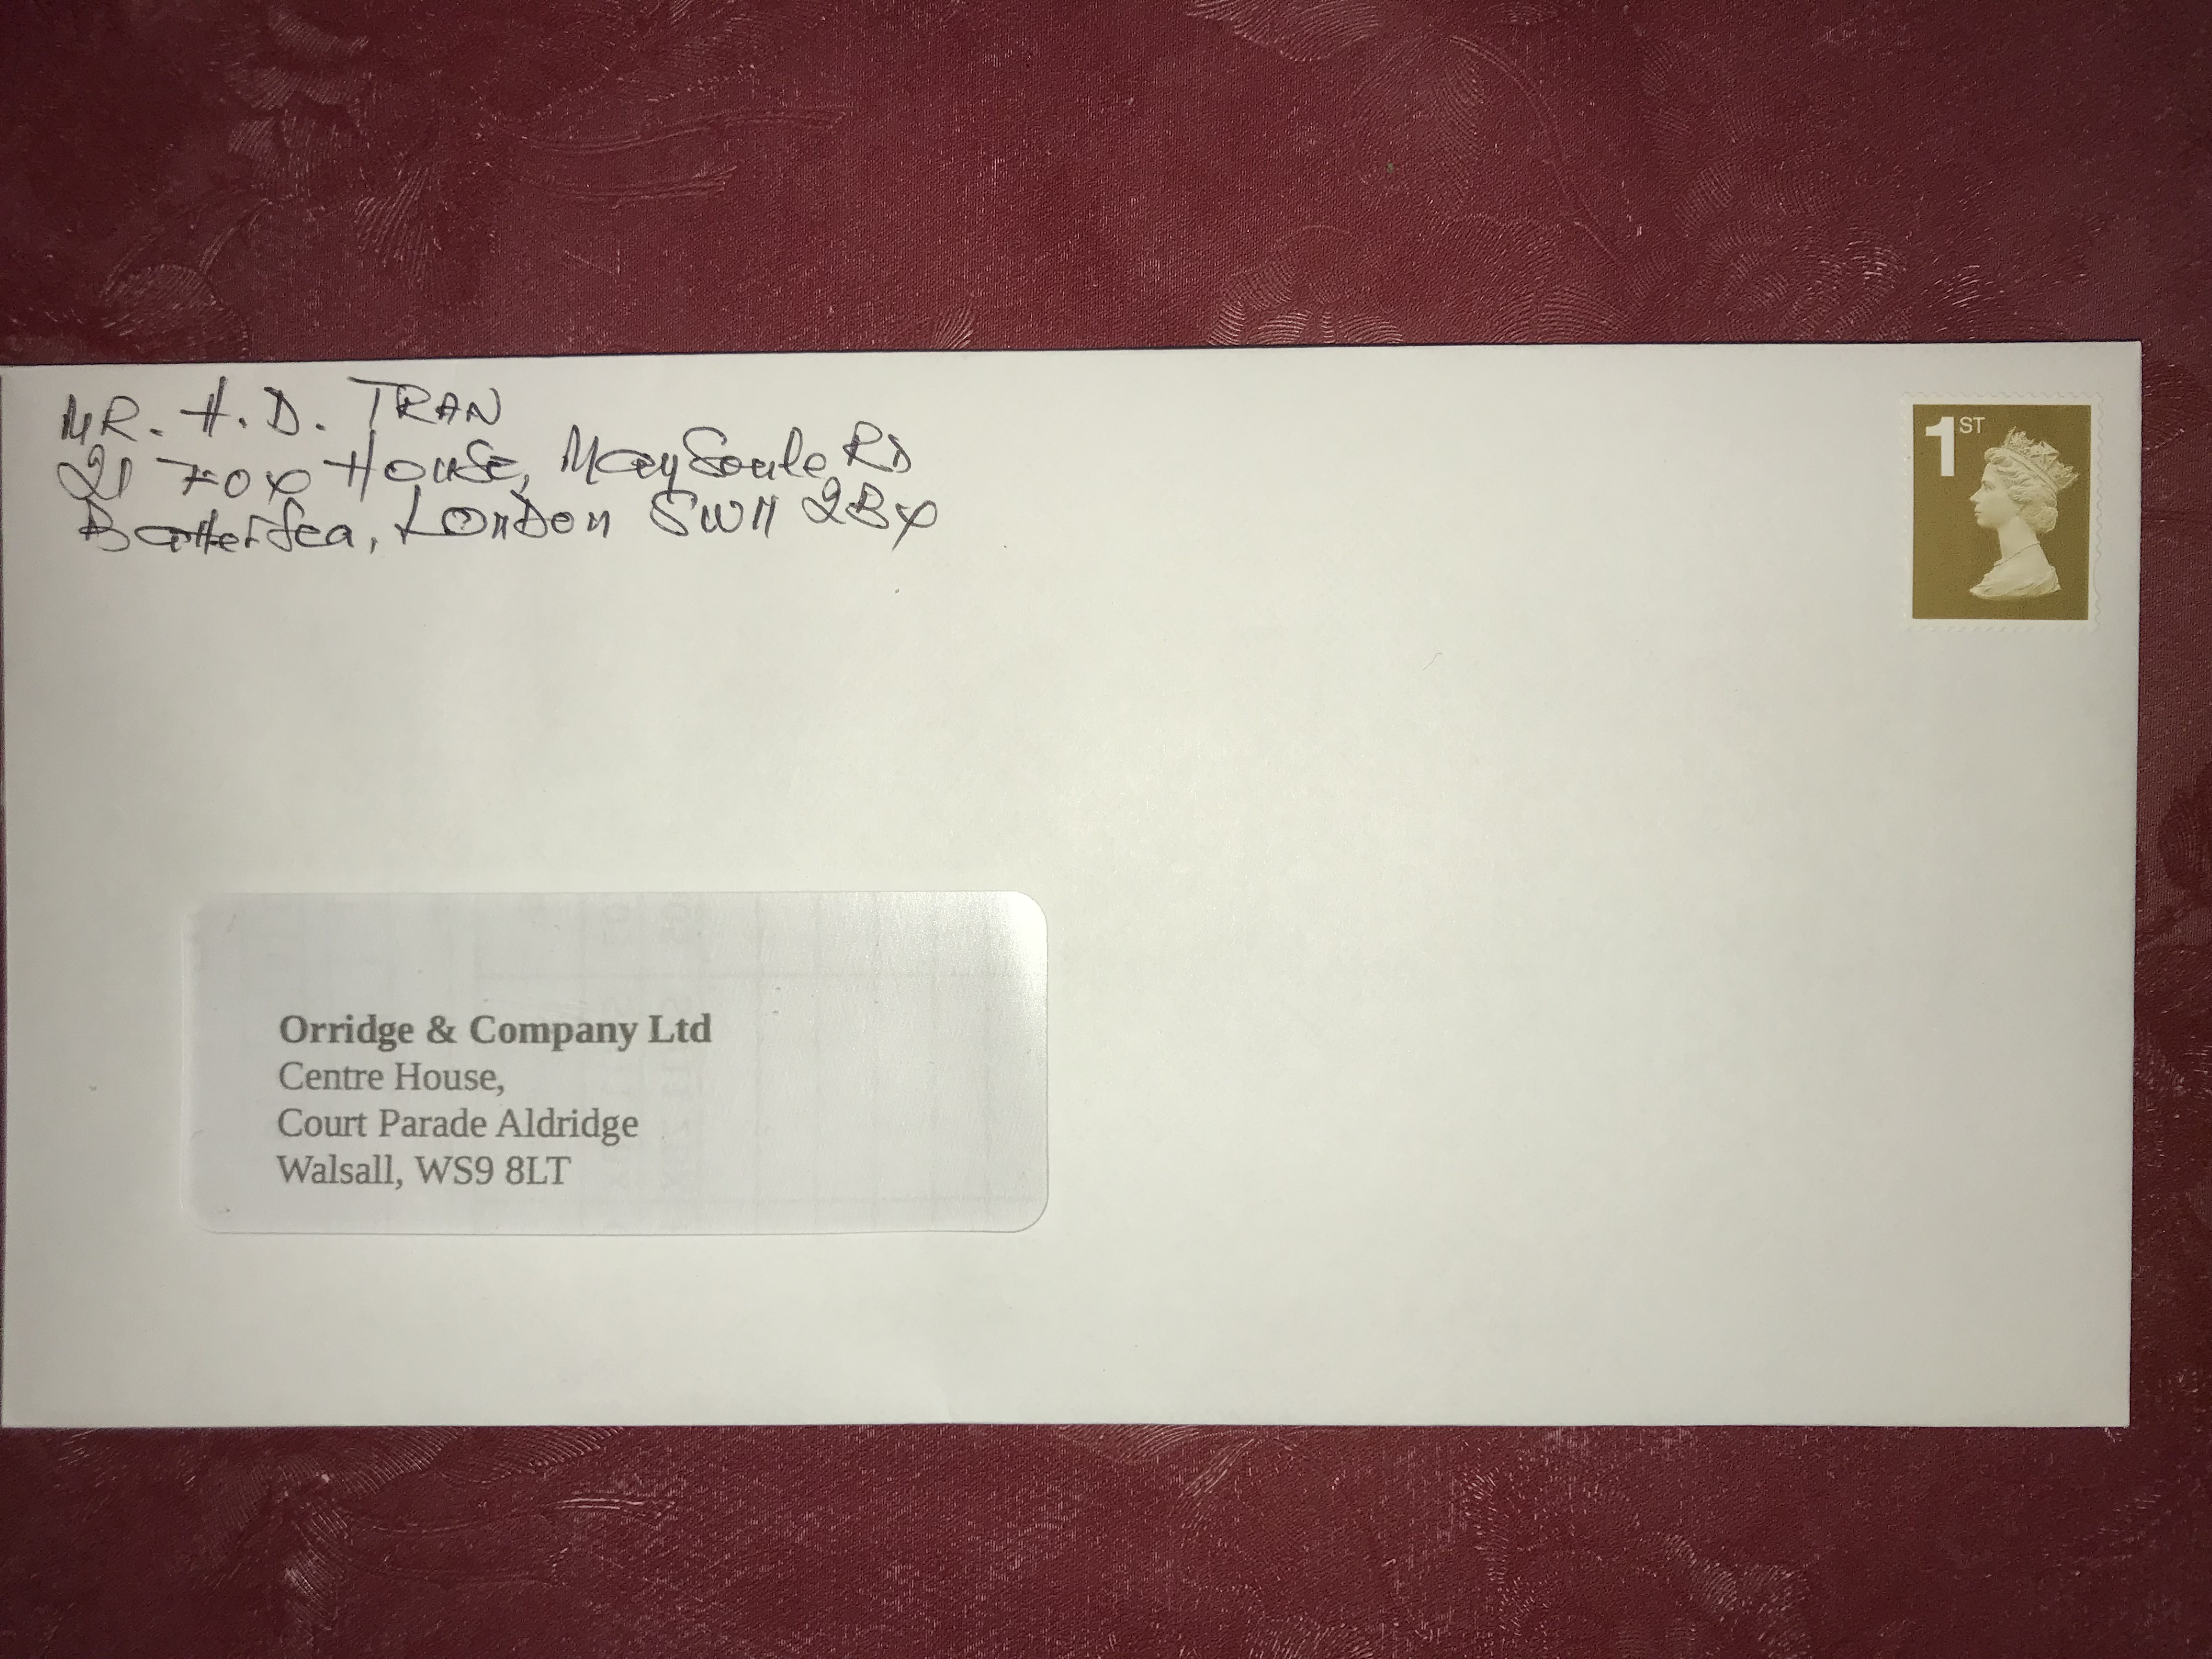 MR. H. D. TRAN
21 FOX HOUSE, MaySoule RD
Battersea, LONDon SW11 2BX
1ST
Orridge & Company Ltd
Centre House,
Court Parade Aldridge
Walsall, WS9 8LT